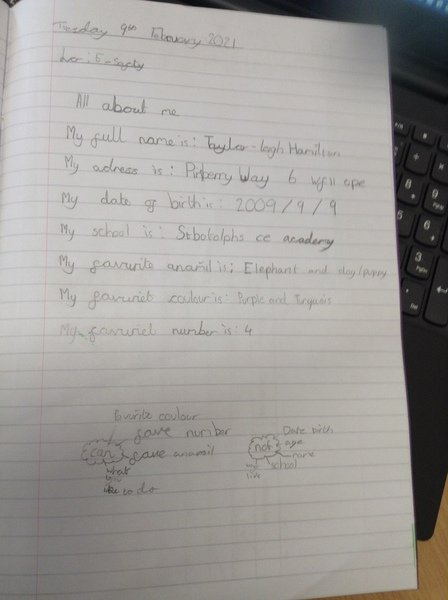 Tuesday 9th February 2021
Lo: E-safty
All about me
My full name is: Taylor-leigh Hamilton
My adress is: Way 6
My date of birth is: 2009/9/9
My school is: St botolphs ce academy
My favurite anamil is: Elephant and dog/puppy
My favuriet coulour is: Purple and Turquois
My favuriet number is: 4
favurite coulour
fave number
can
fave anamail
what
you
like to do
Date birth
age
not
name
school
live